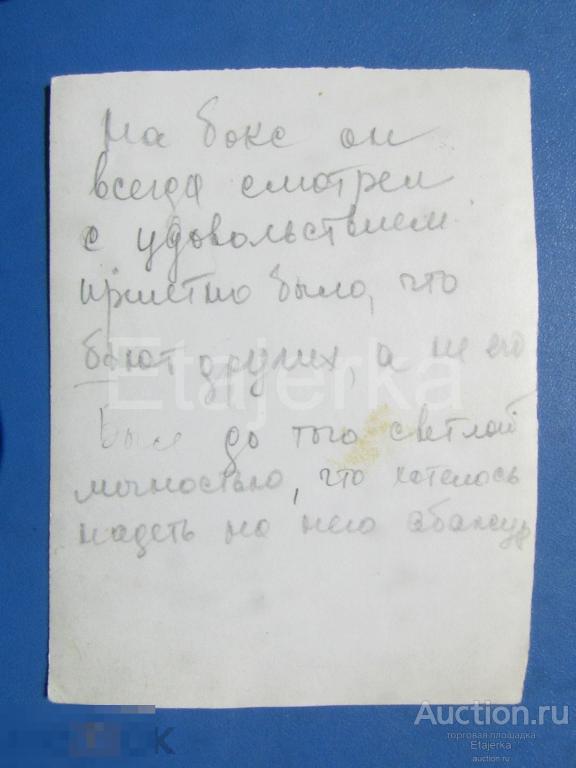 На бокс он
всегда смотрел
с удовольствием
приятно было, что
бьют других, а не его
Был до того светлой
личностью, что хотелось
надеть на него абажур
Etajerka
Auction.ru
торговая площадка
Etajerka
auction.ru